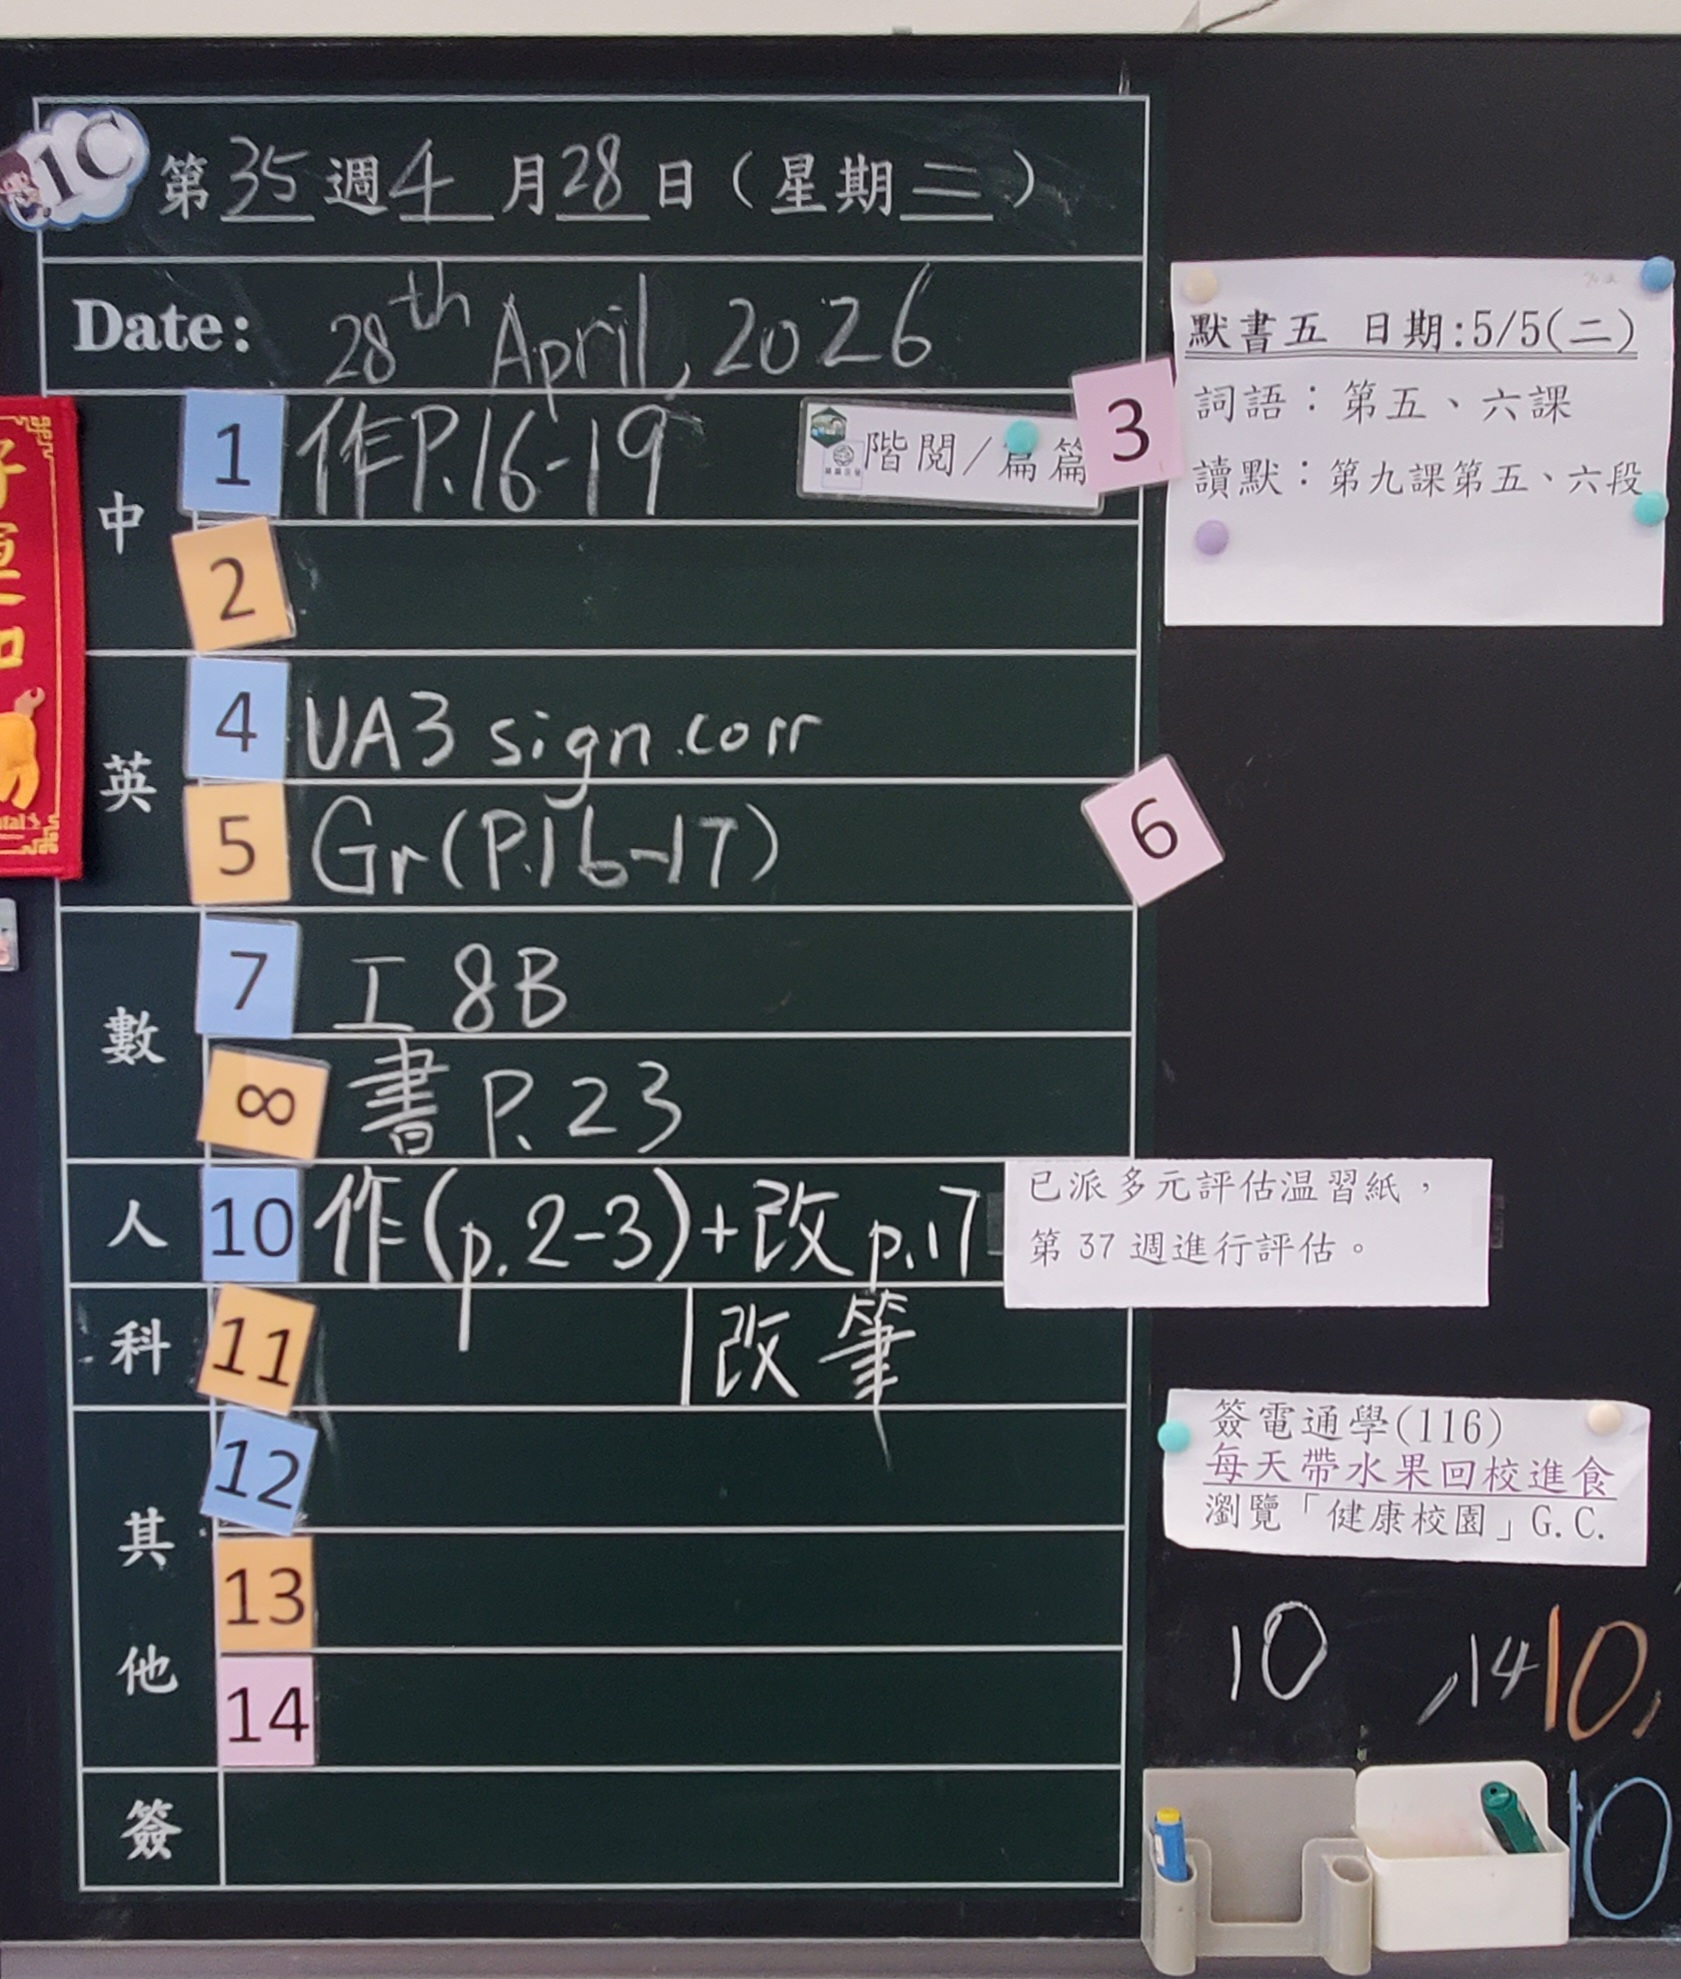 1C
第 35 週 4 月 28 日（星期 二）
Date: 28th April, 2026
中
1 作P.16-19 階閱/篇篇 3
2
英
4 UA3 sign.corr
5 Gr(P.16-17) 6
數
7 工 8B
8 書 P.23
人
10 作(p.2-3)+改p.17
科
11 改筆
其他
12
13
14
簽
默書五 日期:5/5(二)
詞語：第五、六課
讀默：第九課第五、六段
已派多元評估温習紙，
第 37 週進行評估。
簽電通學(116)
每天帶水果回校進食
瀏覽「健康校園」G.C.
10 ,14 10,
10